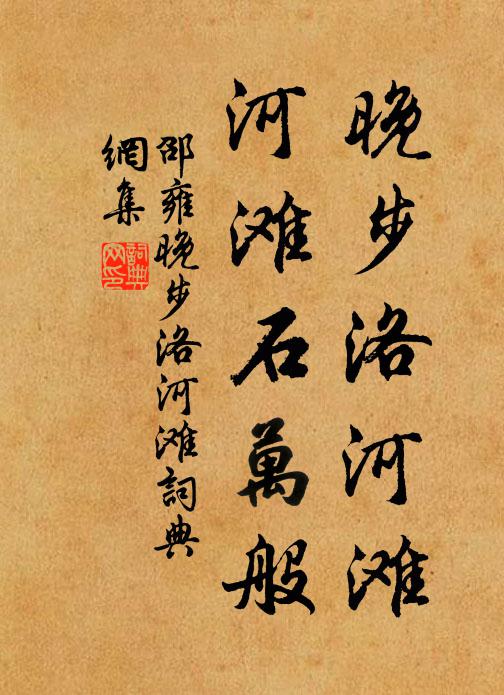 晚步洛河滩
河滩石萬般
邵雍晚步洛河滩詞典
網集
詞典
网印